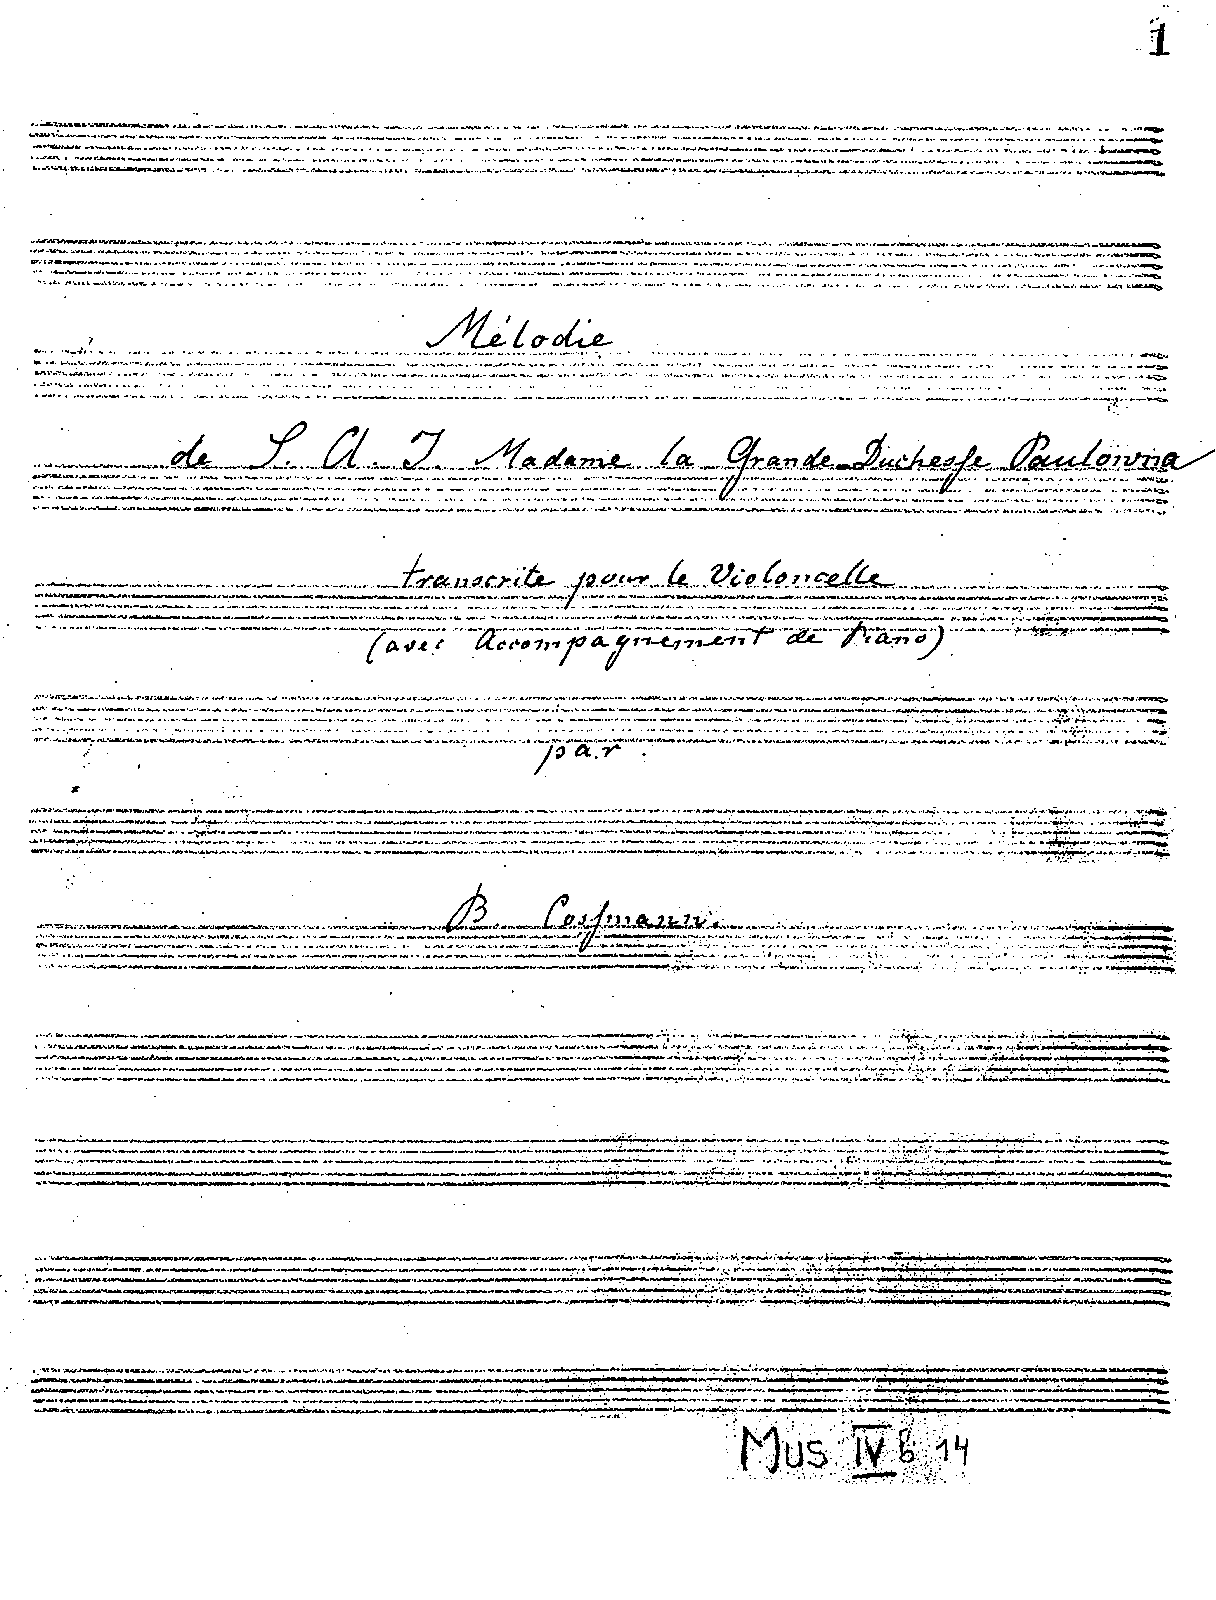 1
Mélodie
de S. A. I. Madame la Grande Duchesse Paulowna
transcrite pour le Violoncelle
(avec Accompagnement de Piano)
par
B. Cossmann.
Mus IV b 14